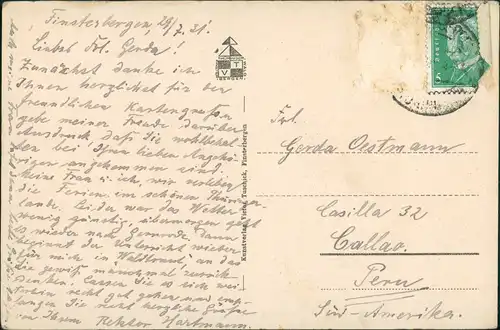 Finsterbergen, 29/7. 31.
Liebes Frl. Gerda!
Zunächst danke ich
Ihnen herzlichst für den
freundlichen Kartengruß u.
gebe meiner Freude darüber
Ausdruck, daß Sie wohlbehal-
ten bei Ihren lieben Angehö-
rigen angekommen sind.
Meine Frau u. ich, wir verleben
die Ferien im schönen Thüringer
lande. Leider war das Wetter
wenig günstig, übermorgen geht
es wieder nach Gernrode. Dann
beginnt der Unterricht wieder
für mich in "Waldbraut" an das
Sie gewiß manchmal zurück
denken. Lassen Sie es sich wei-
terhin recht gut gehen und emp-
fangen Sie recht herzliche Grüße
von Ihrem Rektor Hartmann.
Auch meine Frau
Kunstverlag Victor Tuschek, Finsterbergen
V T
Frl.
Gerda Oestmann
Casilla 32
Callao.
Peru
Süd-Amerika.
5